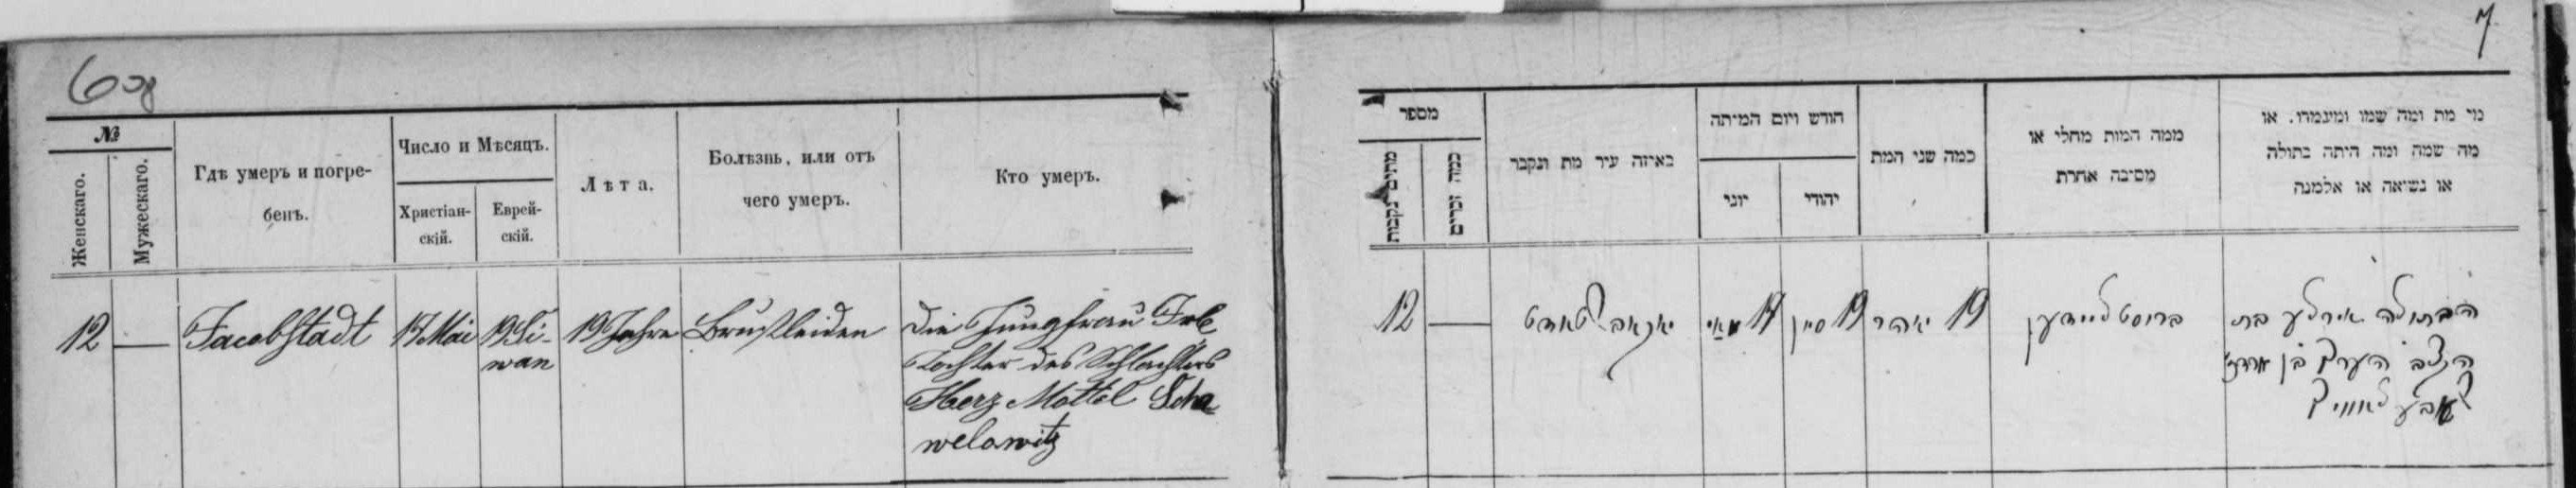 6
7
№
Женскаго.
Мужескаго.
Гдѣ умеръ и погре-
бенъ.
Число и Мѣсяцъ.
Христіан-
скій.
Еврей-
скій.
Лѣта.
Болѣзнь, или отъ
чего умеръ.
Кто умеръ.
12
—
Jacobstadt
17 Mai
19 Si-
wan
19 Jahre
Brustleiden
die Jungfrau
Tochter des Schlachters
Herz Mottel Scha
welowitz
מספר
מתים נקבות
כמה זכרים
באיזה עיר מת ונקבר
חודש ויום המיתה
יוני
יהודי
כמה שני המת
ממה המות מחלי או
מסיבה אחרת
מי מת ומה שמו ומעמדו. או
מה שמה ומה היתה בתולה
או נשואה או אלמנה
12
—
יאקאבשטאדט
17 מאי
19 סיון
19 יאהר
ברוסטליידען
הבתולה בת
הערץ בן
שאבעלאוויץ